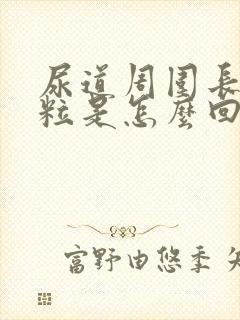 尿道周围長
粒是怎麼回
富野由悠季